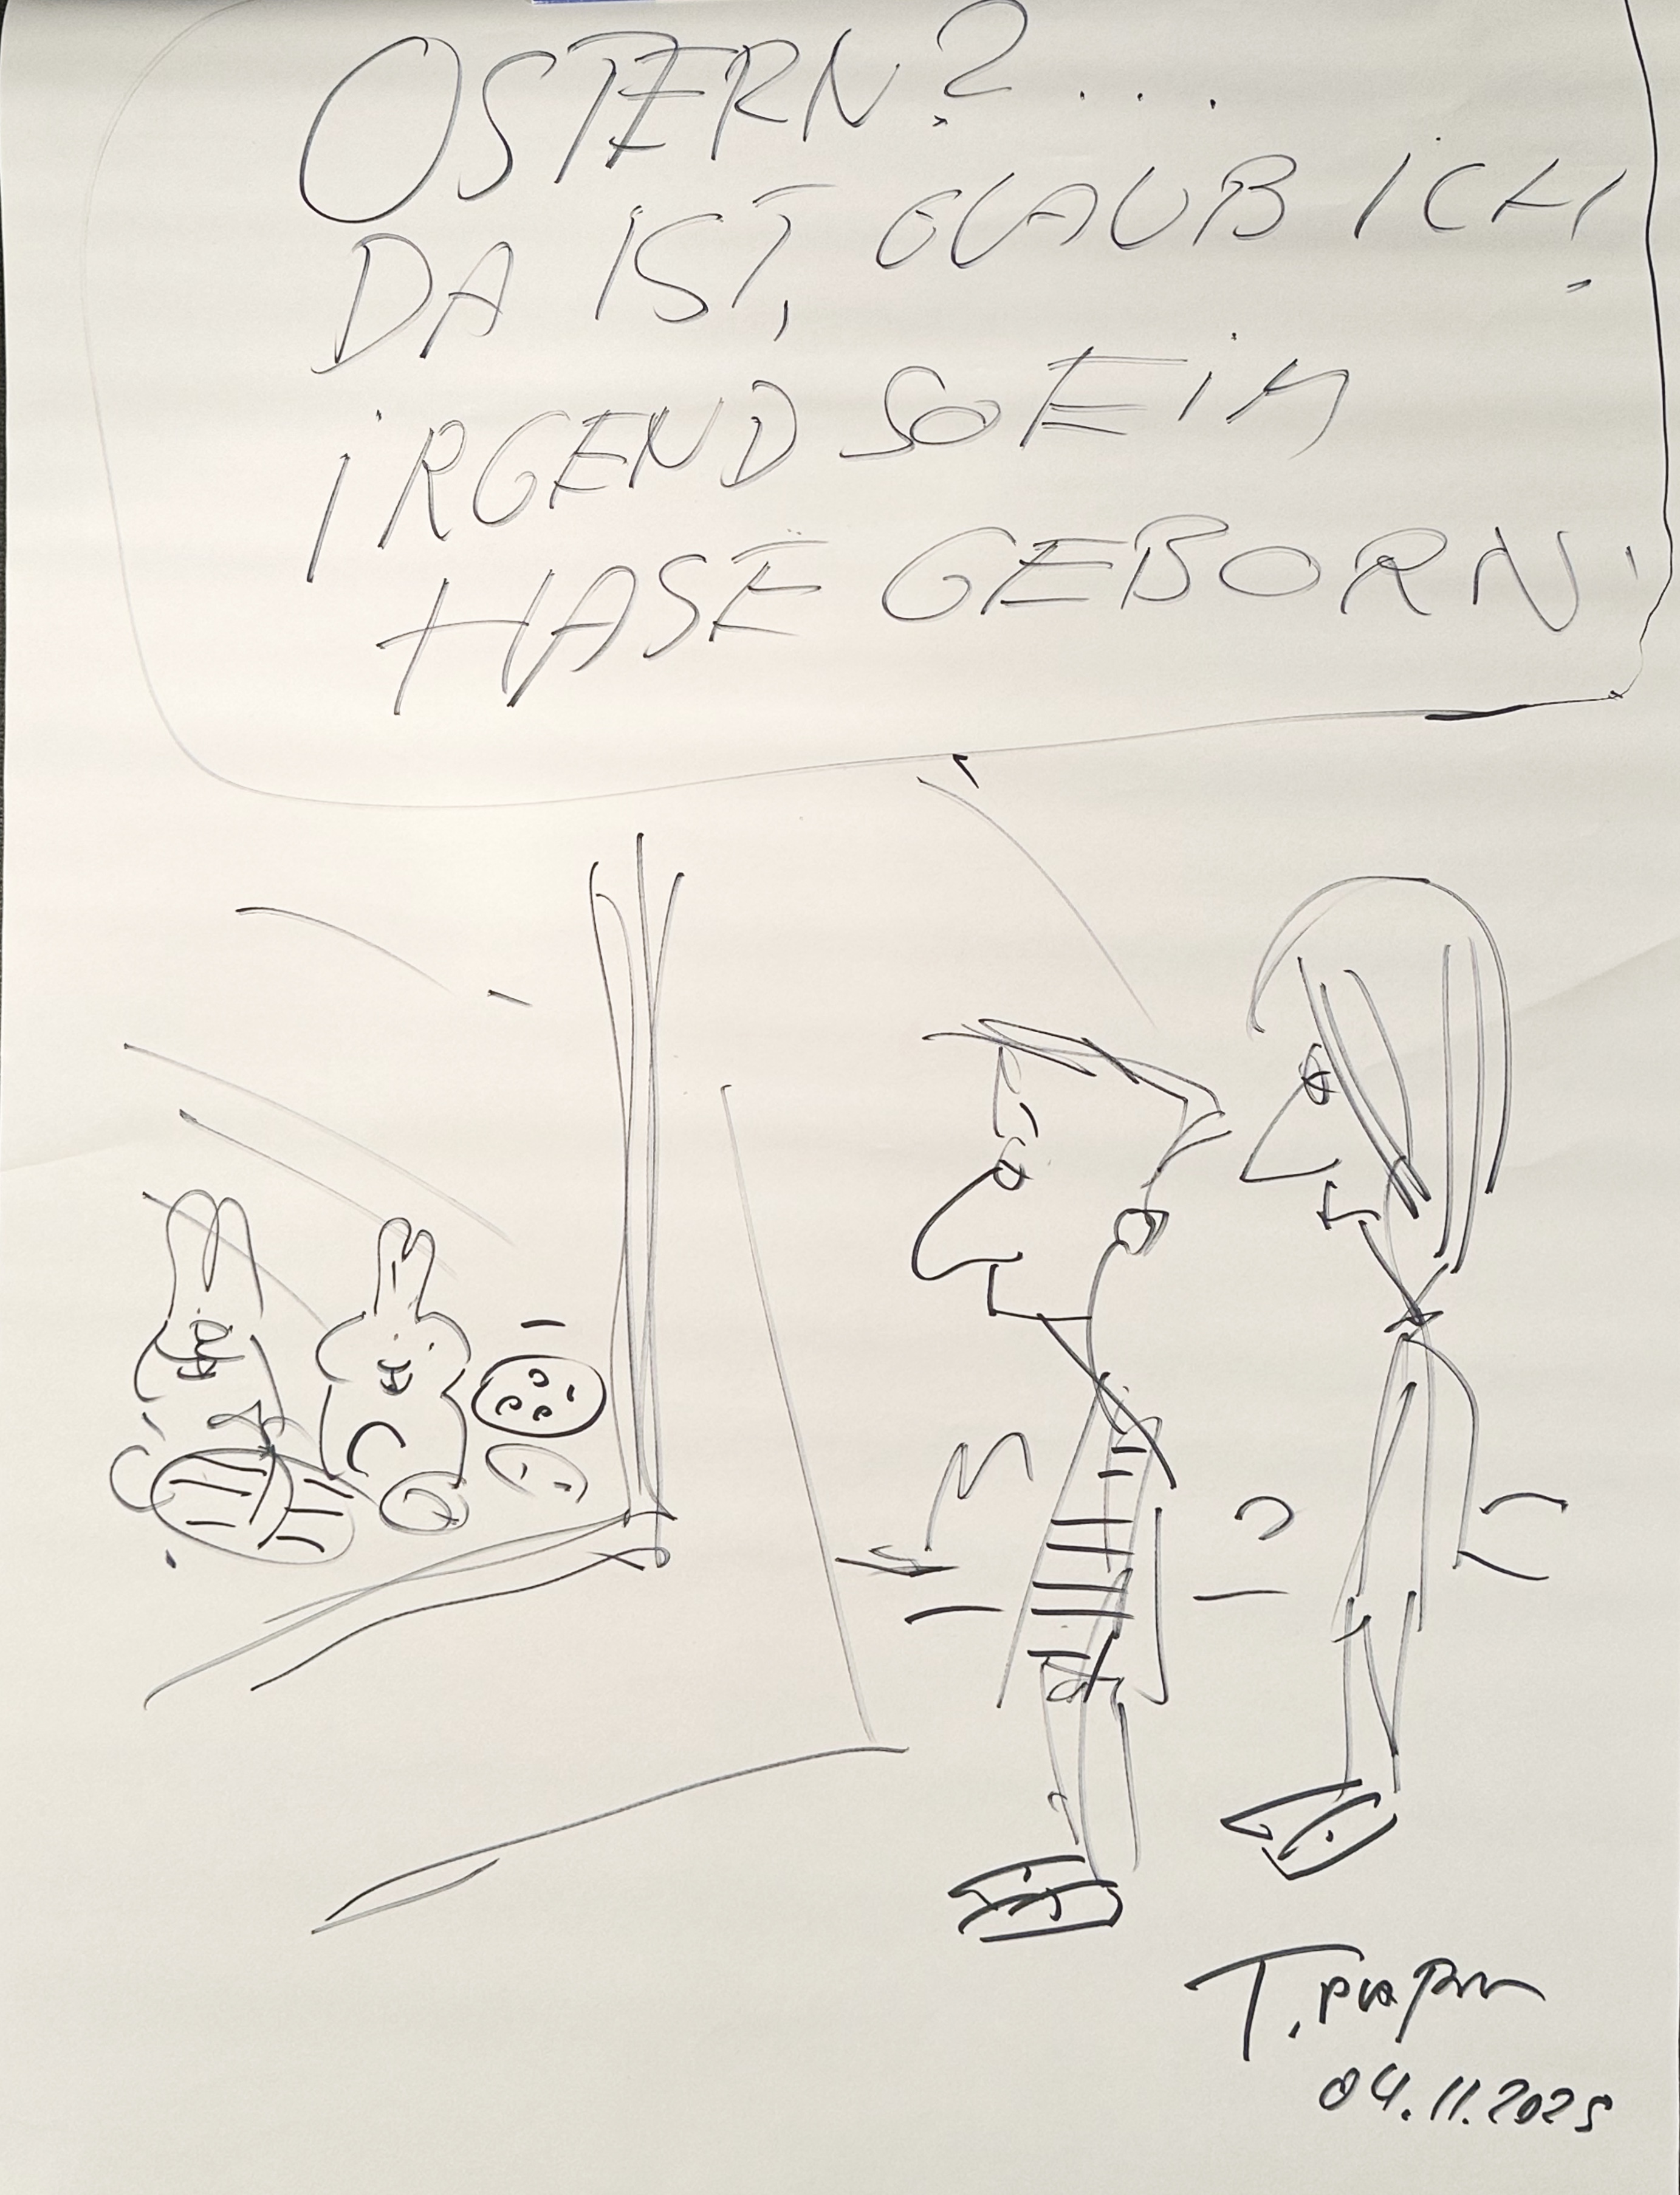 OSTERN? ...
DA IST, GLAUB ICH,
IRGEND SO EIN
HASE GEBORN.
T.
04.11.2025